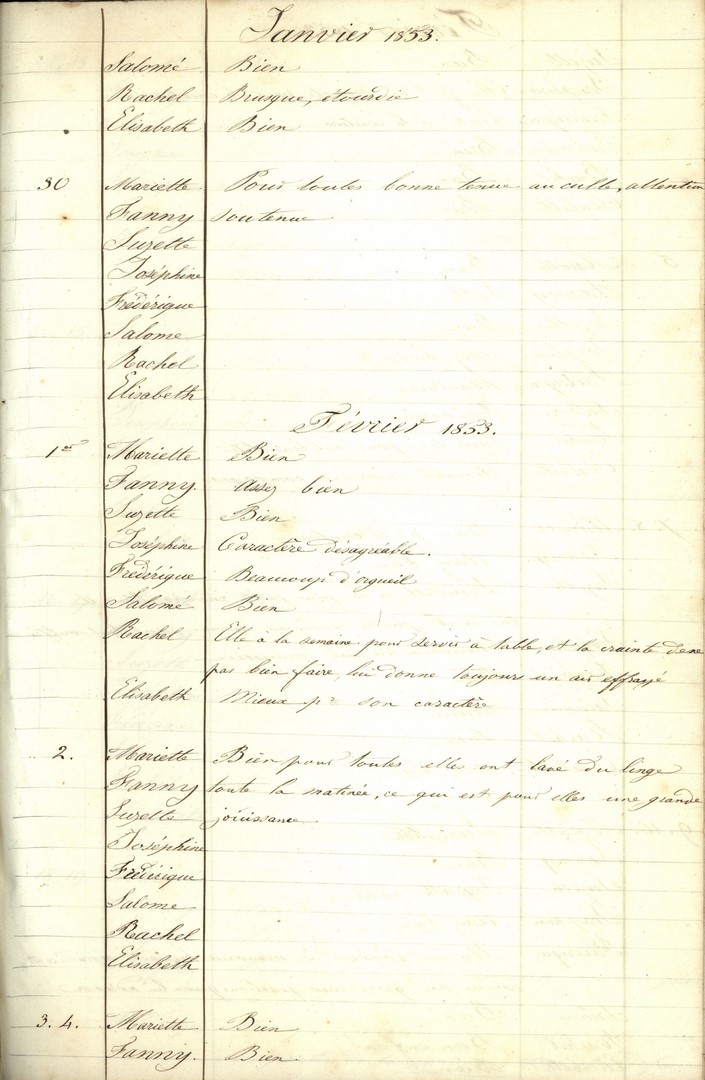 Janvier 1853.
Salomé Bien
Rachel Brusque, étourdie
Elisabeth Bien
30 Mariette Pour toutes bonne tenue au culte, attention
Fanny soutenue
Suzette
Joséphine
Frédérique
Salome
Rachel
Elisabeth
Février 1853.
1er Mariette Bien
Fanny. Assez bien
Suzette Bien
Joséphine Caractère désagréable.
Frédérique Beaucoup d'orgueil
Salomé Bien
Rachel Elle a la semaine pour servir à table, et la crainte de ne
pas bien faire, lui donne toujours un air effrayé
Elisabeth Mieux pr son caractère
2. Mariette Bien pour toutes elles ont lavé du linge
Fanny toute la matinée, ce qui est pour elles une grande
Suzette jouissance
Joséphine
Frédérique
Salome
Rachel
Elisabeth
3. 4. Mariette Bien
Fanny. Bien